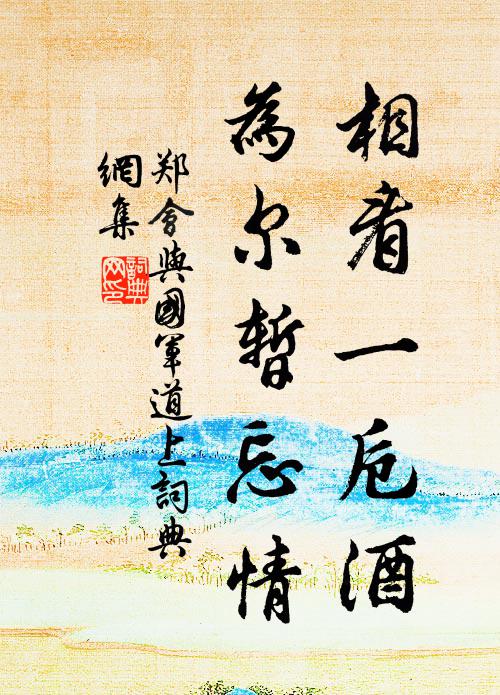 相看一卮酒
為尔暫忘情
郑會與國軍道上詞典
網集
詞典网印